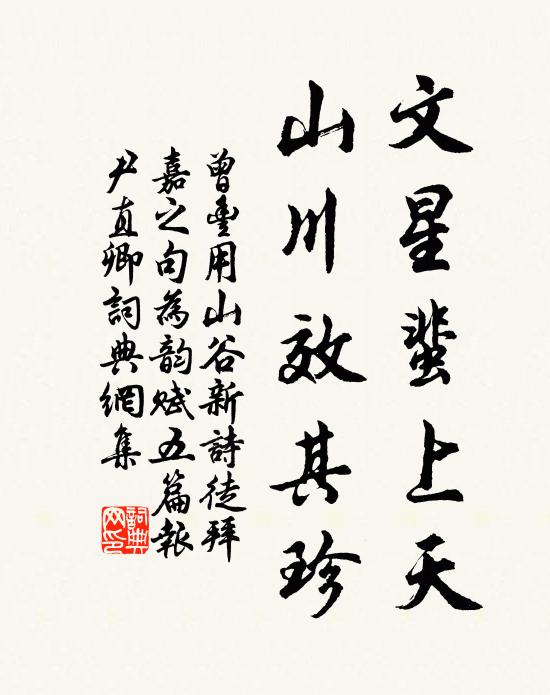 文星蜚上天
山川效其珍
曾豊用山谷新詩徒拜
嘉之句為韵赋五篇報
尹直卿詞典網集
詞典网印